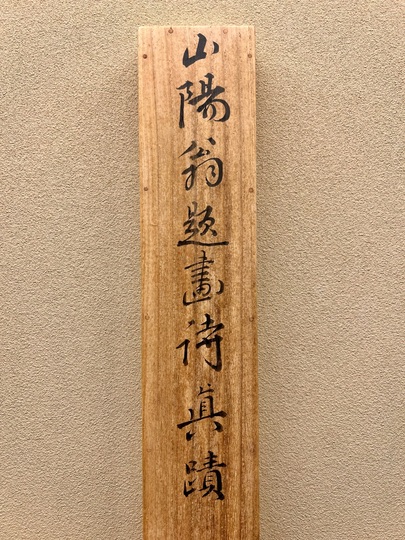 山陽翁題畫詩眞蹟